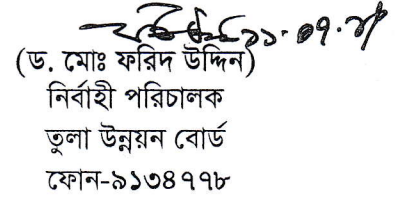 ১১.০৭.১৮
(ড. মোঃ ফরিদ উদ্দিন)
নির্বাহী পরিচালক
তুলা উন্নয়ন বোর্ড
ফোন-৯১৩৪৭৭৮